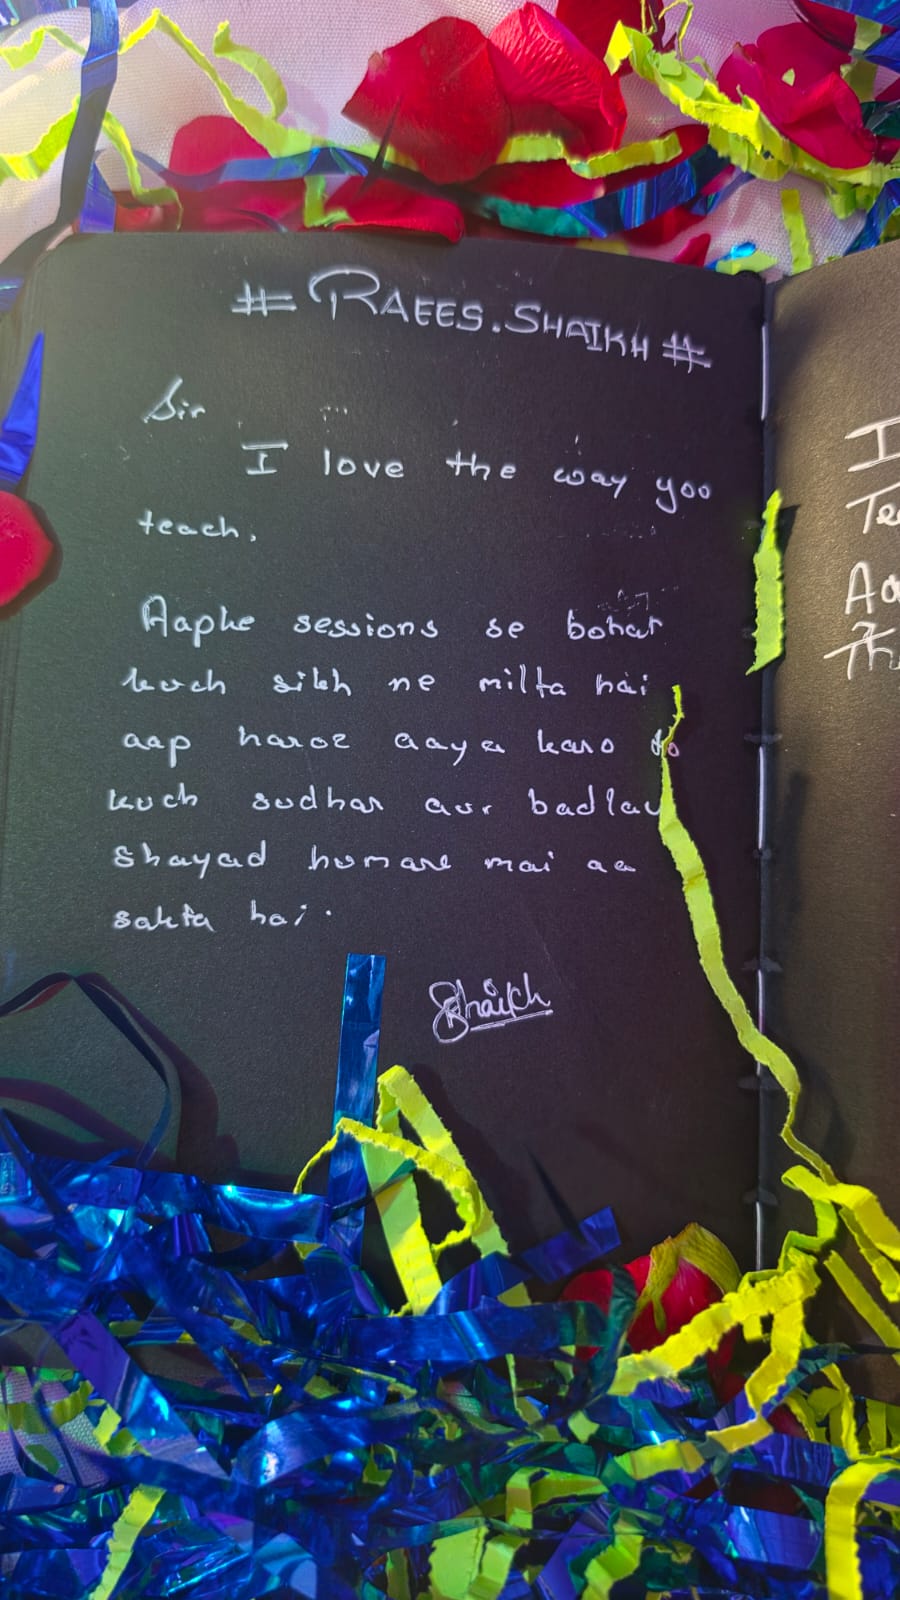 # RAEES.SHAIKH #
Sir
I love the way you
teach.
Aapke sessions se bohat
kuch sikh ne milta hai
aap haroz aaya karo to
kuch sudhar aur badlav
shayad humare mai aa
sakta hai.
Shaikh
I
Te
Aa
Th